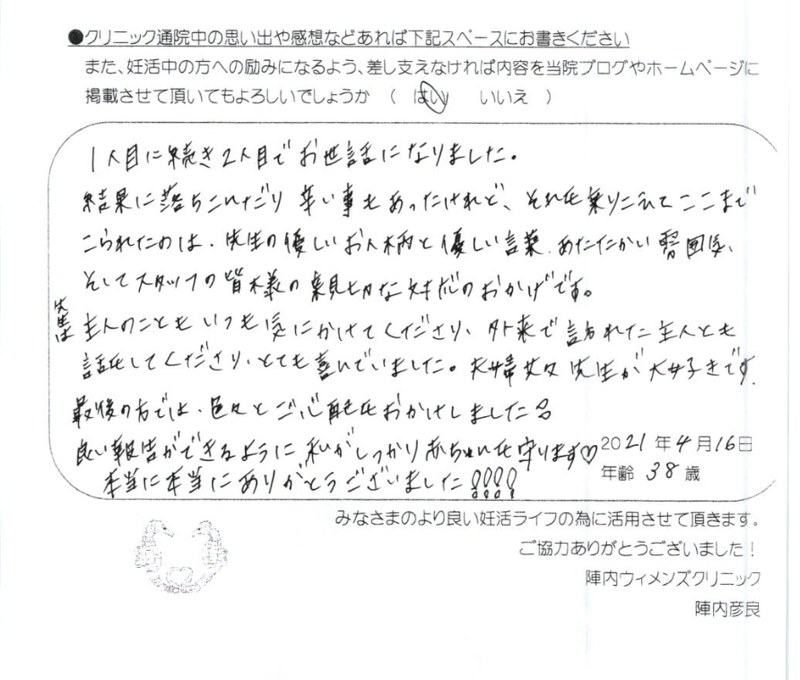 ●クリニック通院中の思い出や感想などあれば下記スペースにお書きください
また、妊活中の方への励みになるよう、差し支えなければ内容を当院ブログやホームページに
掲載させて頂いてもよろしいでしょうか （ はい いいえ ）
1人目に続き2人目でお世話になりました。
結果に落ちこんだり 辛い事もあったけれど、それを乗りこえてここまで
こられたのは、先生の優しいお人柄と優しい言葉、あたたかい雰囲気、
そしてスタッフの皆様の親切な対応のおかげです。
先生は 主人のこともいつも気にかけてくださり、外来で訪れた主人とも
話をしてくださり、とても喜んでいました。夫婦共々先生が大好きです。
最後の方では、色々とご心配をおかけしました
良い報告ができるように私がしっかり赤ちゃんを守ります♡
本当に本当にありがとうございました!!!!
2021年4月16日
年齢 38歳
みなさまのより良い妊活ライフの為に活用させて頂きます。
ご協力ありがとうございました！
陣内ウィメンズクリニック
陣内彦良